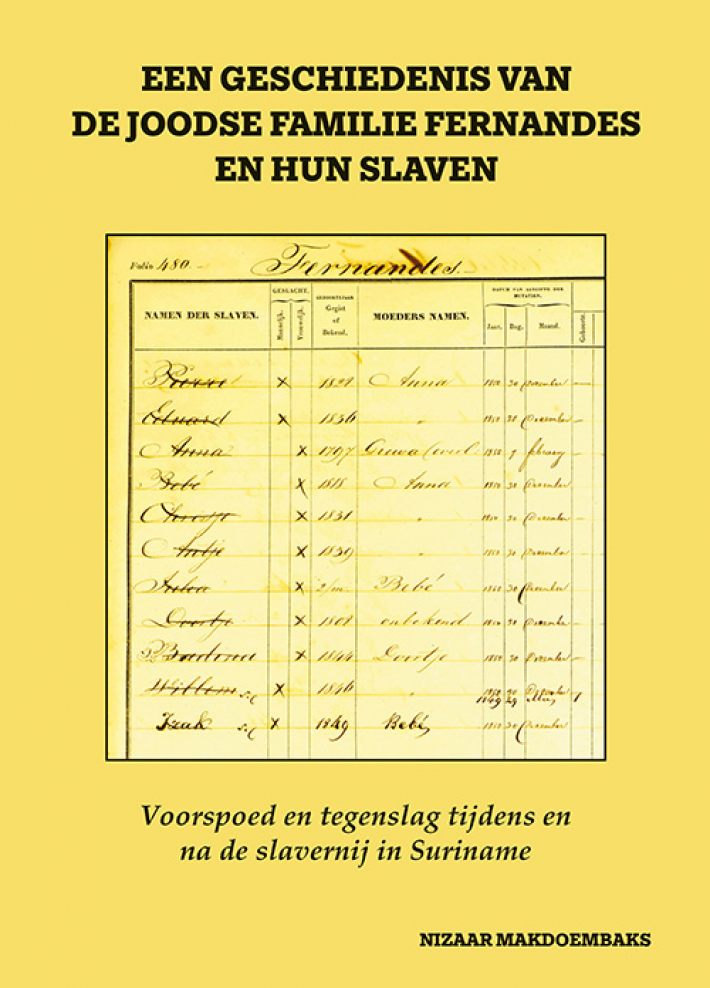 EEN GESCHIEDENIS VAN
DE JOODSE FAMILIE FERNANDES
EN HUN SLAVEN
Folio 480.
Fernandes.
NAMEN DER SLAVEN.
GESLACHT.
Mannelijk.
Vrouwelijk.
GEBOORTEJAAR
Gegist
of
Bekend.
MOEDERS NAMEN.
DATUM VAN AANGIFTE DER
MUTATIEN.
Jaar.
Dag.
Maand.
Geboorte.
Pierre x Anna 1850 30 December
Eduard x 1836 " 1850 30 December
Anna x 1797 1850 9 february
Bebé x 1818 Anna 1850 30 December
x 1831 " 1850 30 December
Antje x 1839 " 1850 30 December
x Bebé 1850 30 December
Doortje x onbekend 1850 30 December
x 1844 Doortje 1850 30 December
Willem x 1846 " 1850 30 December
1849 29 1
Izak x 1849 Bebé 1850 30 December
Voorspoed en tegenslag tijdens en
na de slavernij in Suriname
NIZAAR MAKDOEMBAKS